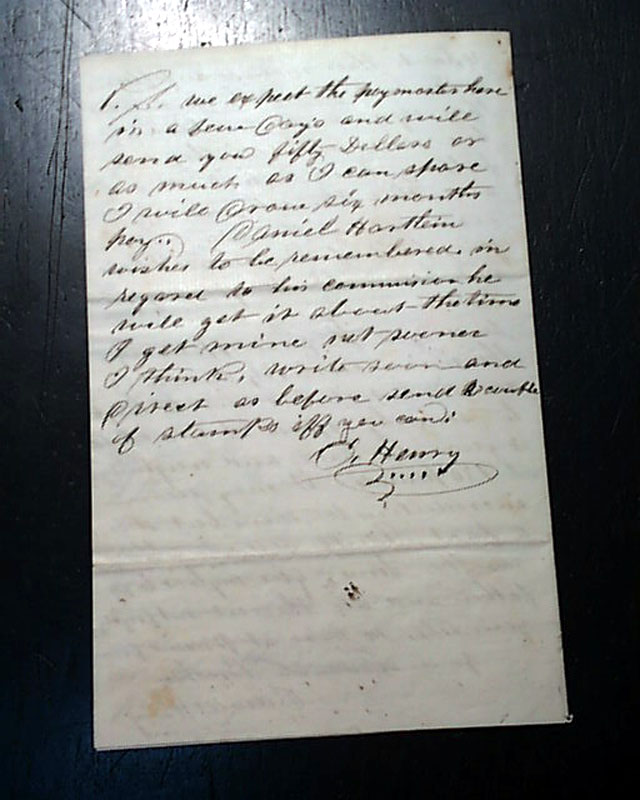 P. S. we expect the paymaster here
in a few Days and will
send you fifty Dollars or
as much as I can spare
I will Draw six months
pay. Daniel Hartlein
wishes to be remembered in
regard to his commission he
will get it about the time
I get mine not sooner
I think, write soon and
Direct as before send a couple
of stamps iff you can.
Henry